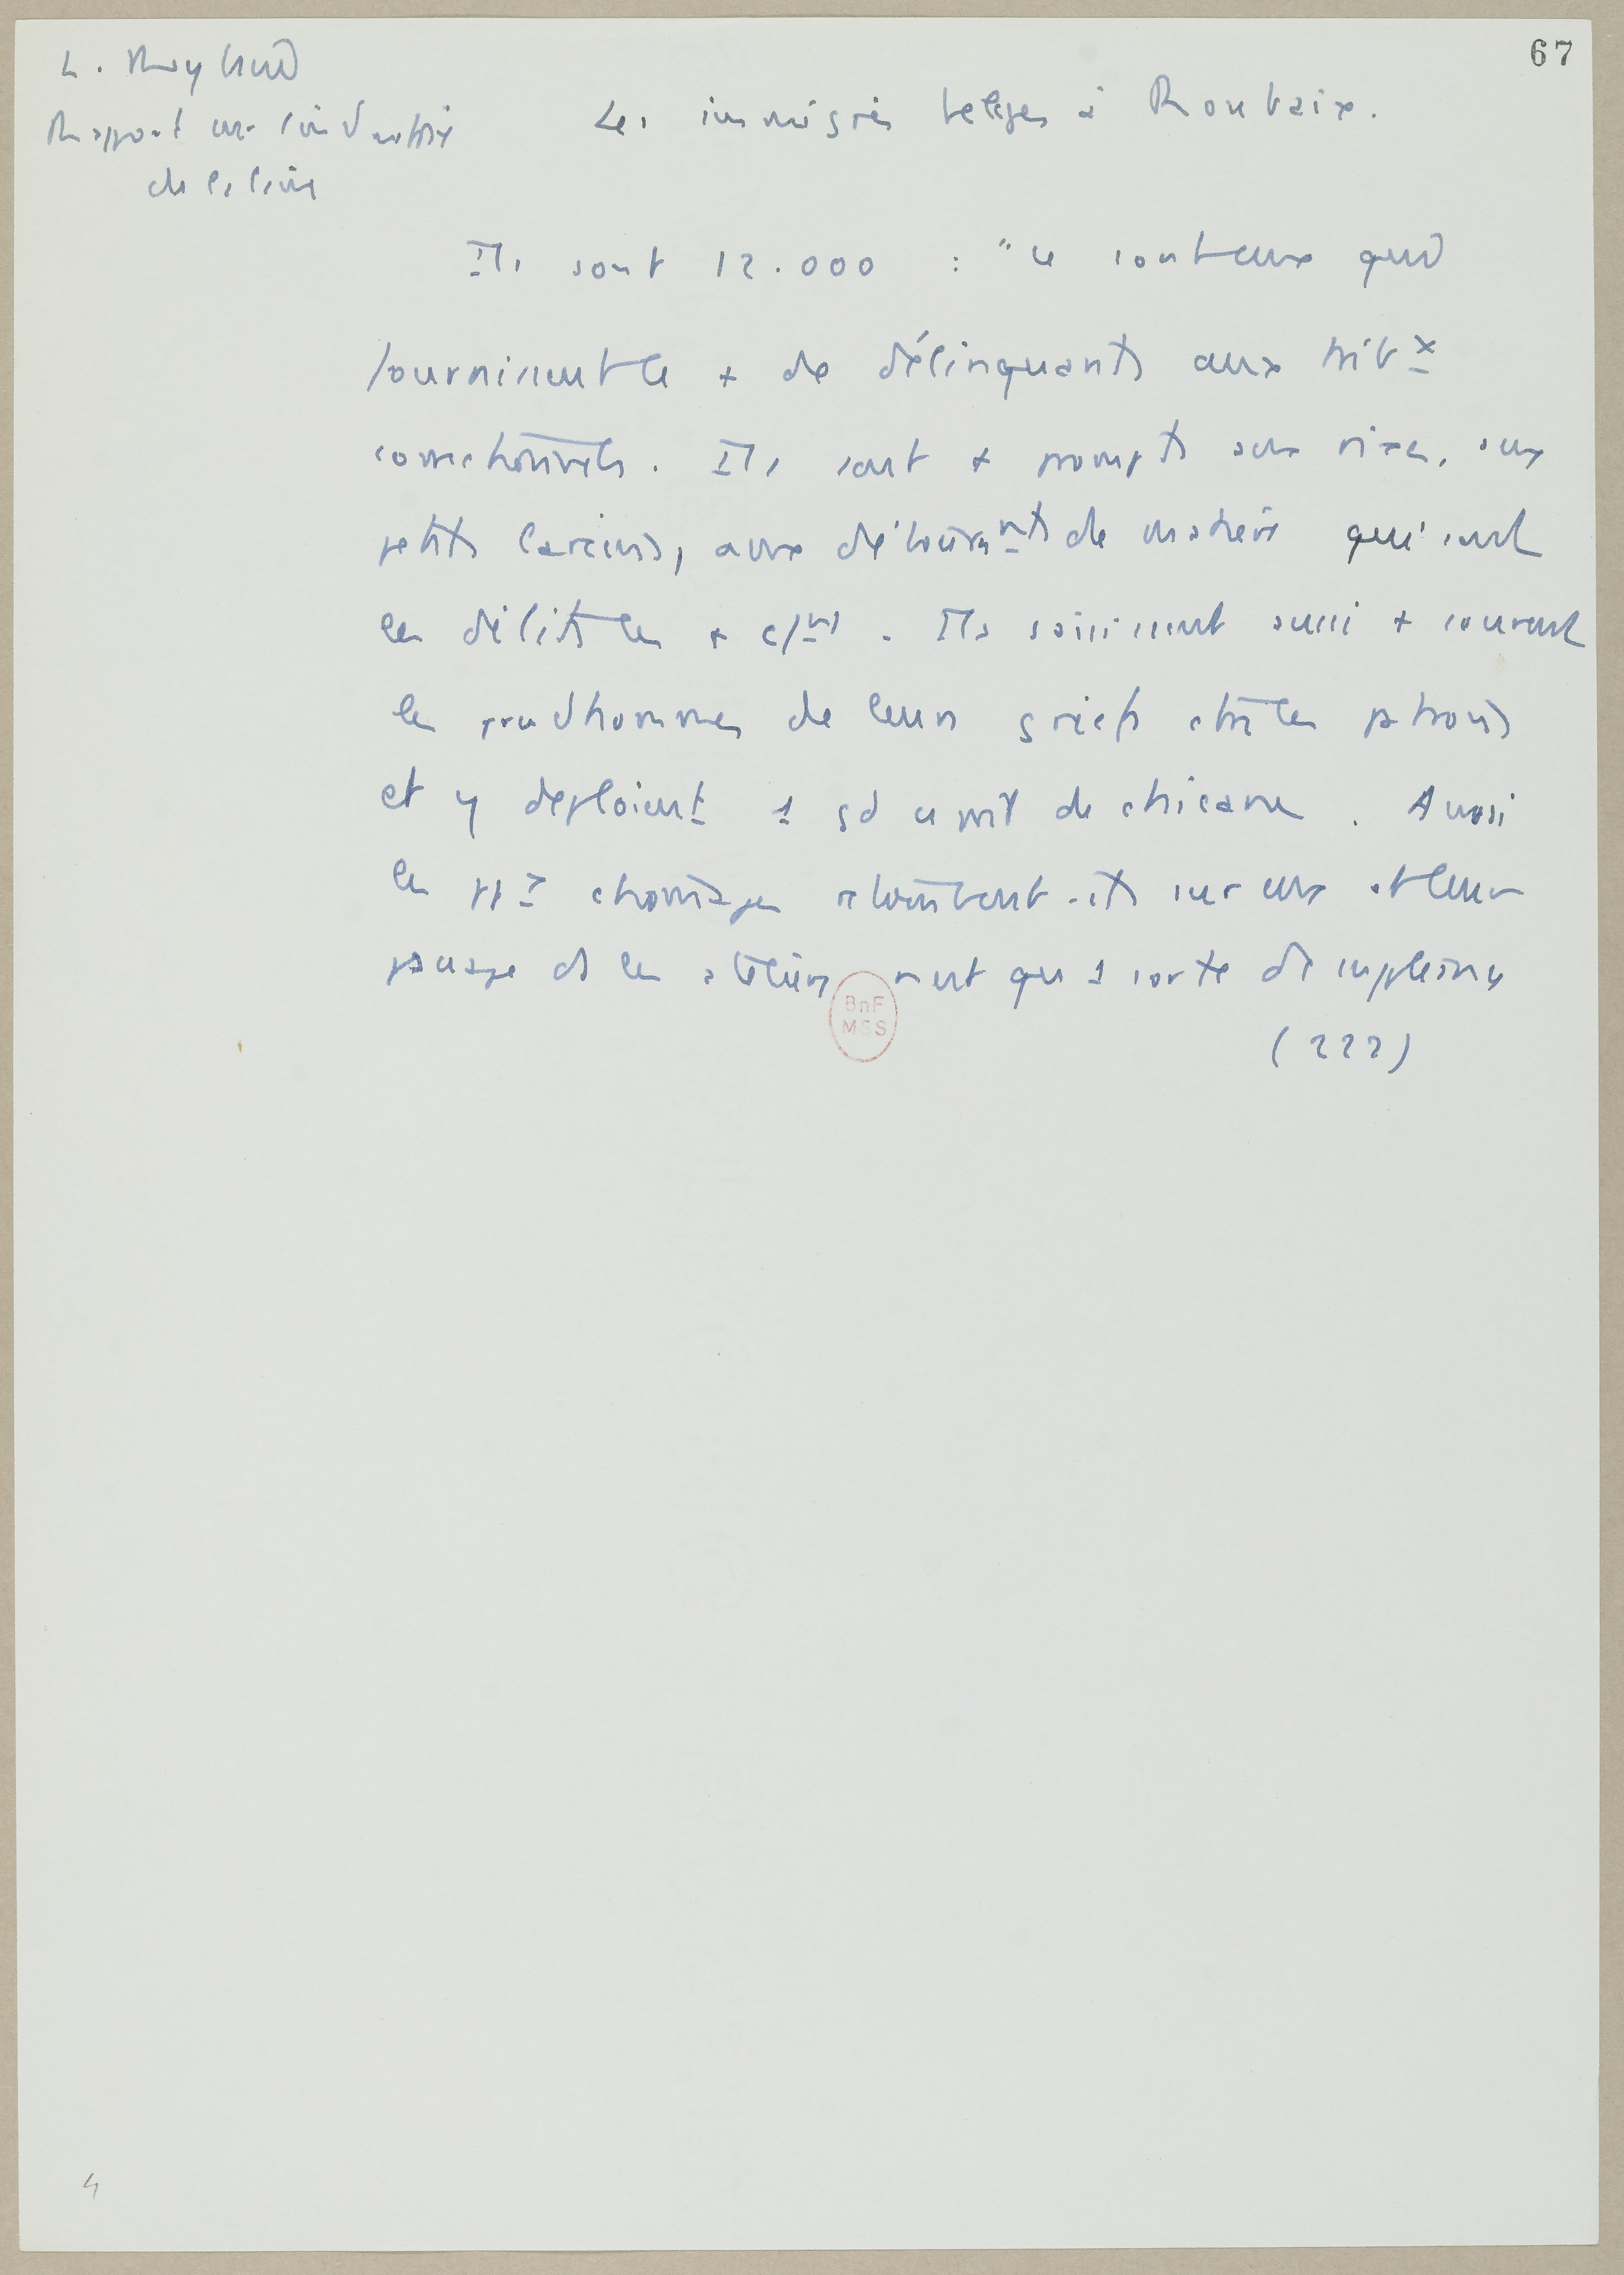 67
L. Reybaud
Rapport sur l'industrie
de la laine
Les immigrés belges à Roubaix.
Ils sont 12.000 : "ce sont eux qui
fournissent le + de délinquants aux tribx
correctionnels. Ils sont + prompts aux rixes, aux
petits larcins, aux détournmts de matière qui sont
les délits les + . Ils saisissent aussi + souvent
les prudhommes de leurs griefs ctre les patrons
et y déploient 1 gd esprit de chicane. Aussi
les ppx chomages retombent-ils sur eux et leur
passage ds les ateliers n'est qu'1 sorte de
(222)
BnF
MSS
4